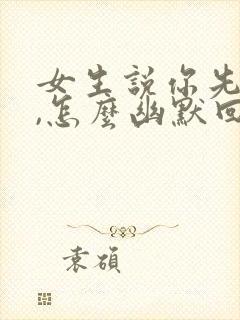 女生說你先
,怎麼幽默回
袁碩